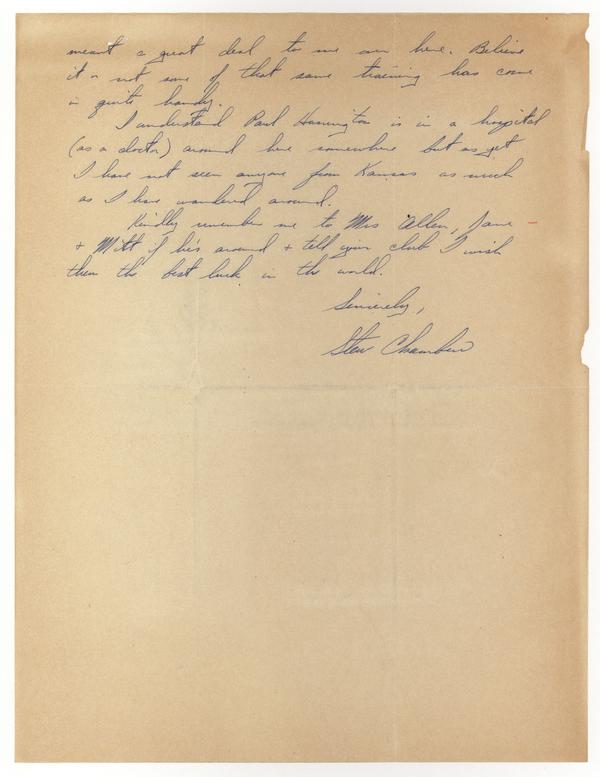 meant a great deal to me over here. Believe
it or not some of that same training has come
in quite handy.
I understand Paul Harrington is in a hospital
(as a doctor) around here somewhere but as yet
I have not seen anyone from Kansas as much
as I have wandered around.
Kindly remember me to Mrs Allen, Jane
+ Mitt if he's around + tell your club I wish
them the best luck in the world.
Sincerely,
Stew Chambers